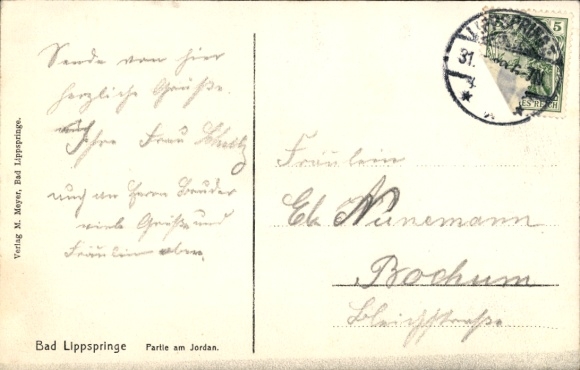 Sende von hier
herzliche Grüße.
Ihre Frau
auch an Herrn Bruder
viele Grüße und
Fräulein oben.
Verlag M. Meyer, Bad Lippspringe.
Bad Lippspringe Partie am Jordan.
LIPPSPRINGE
31.
5
Fräulein
El. Nünemann
Bochum
Bleichstraße